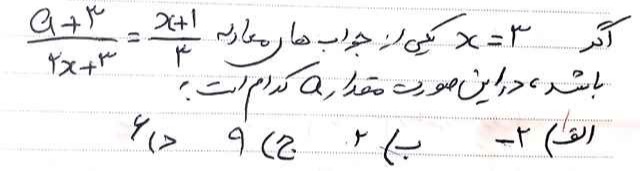 اگر x = ۳ یکی از جواب های معادله (a+۳)/(۲x+۳) = (x+۱)/۳
باشد، در این صورت مقدار a کدام است؟
الف) ۲- ب) ۲ ج) ۹ د) ۶